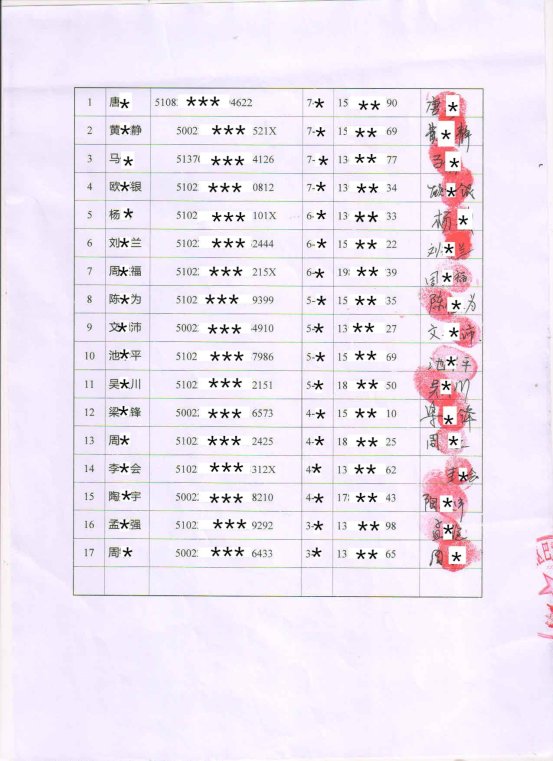 1 唐* 5108 *** 4622 7-* 15 ** 90 唐*
2 黄*静 5002 *** 521X 7-* 15 ** 69 黄*静
3 马* 5137 *** 4126 7-* 13 ** 77 马*
4 欧*银 5102 *** 0812 7-* 13 ** 34 欧*银
5 杨* 5102 *** 101X 6-* 13 ** 33 杨*
6 刘*兰 5102 *** 2444 6-* 15 ** 22 刘*兰
7 周*福 5102 *** 215X 6-* 19 ** 39 周*福
8 陈*为 5102 *** 9399 5-* 15 ** 35 陈*为
9 文*沛 5002 *** 4910 5-* 13 ** 27 文*沛
10 池*平 5102 *** 7986 5-* 15 ** 69 池*平
11 吴*川 5102 *** 2151 5-* 18 ** 50 吴*川
12 梁*锋 5002 *** 6573 4-* 15 ** 10 梁*锋
13 周* 5102 *** 2425 4-* 18 ** 25 周*
14 李*会 5102 *** 312X 4* 13 ** 62 *会
15 陶*宇 5002 *** 8210 4-* 17 ** 43 陶*宇
16 孟*强 5102 *** 9292 3-* 13 ** 98 孟*
17 周* 5002 *** 6433 3* 13 ** 65 周*